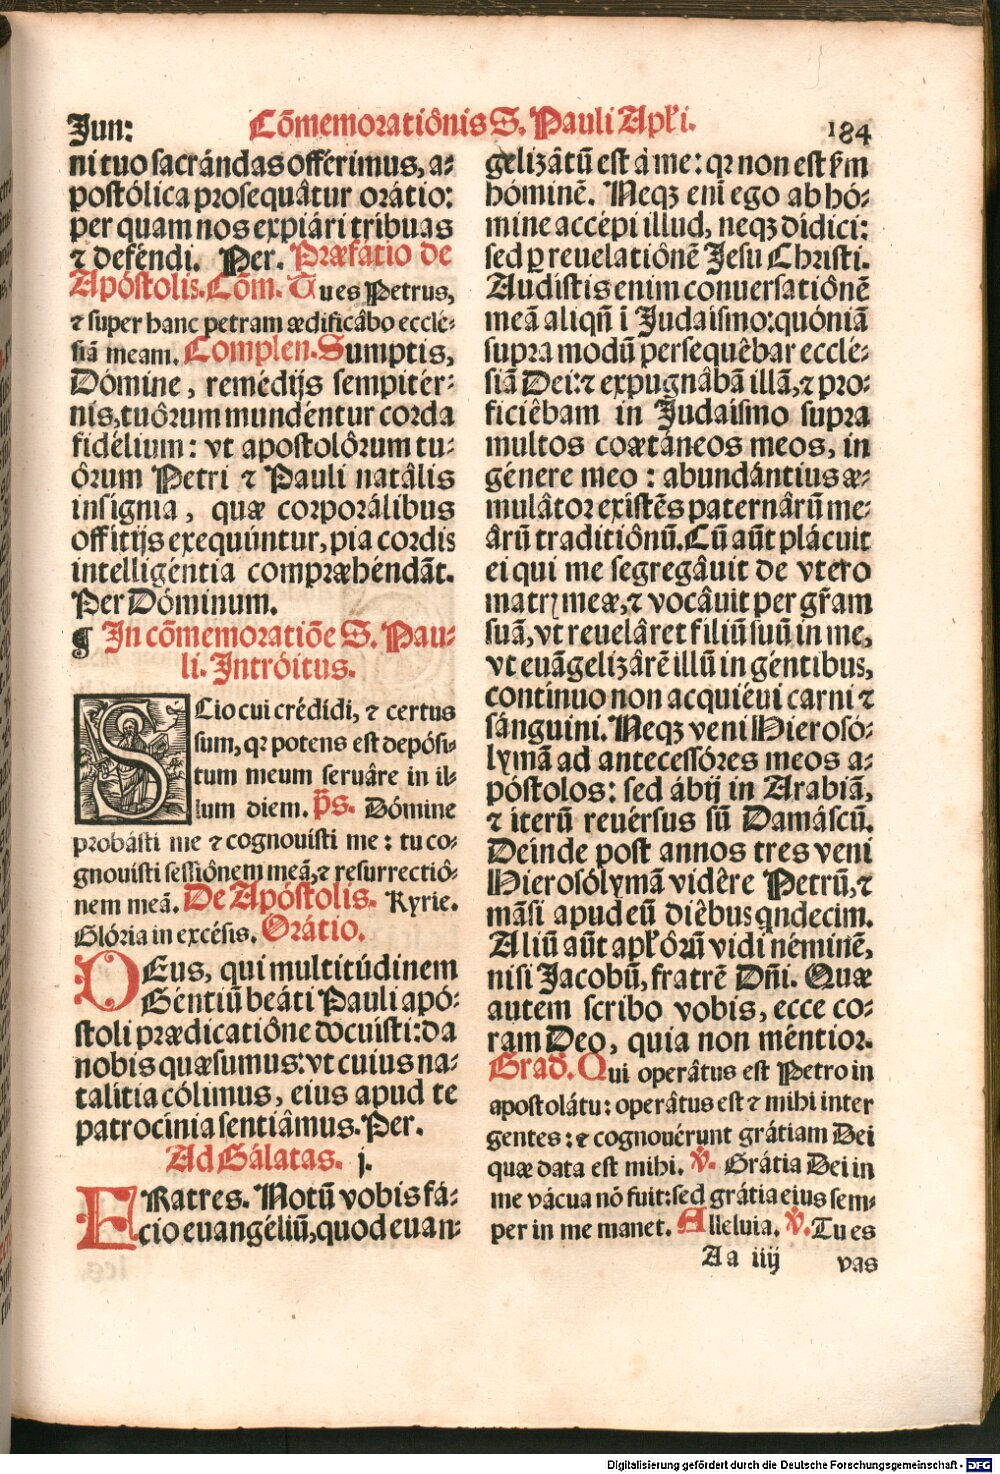 Jun:
Cõmemoratiônis S. Pauli Apľi.
184
ni tuo sacrándas offérimus, a-
postólica prosequâtur orátio:
per quam nos expiári tribuas
⁊ deféndi. Per. Præfatio de
Apóstolis. Cõm. Tu es Petrus,
⁊ super hanc petram ædificâbo ecclé-
siã meam. Complen. Sumptis,
Dómine, remédijs sempitér-
nis, tuôrum mundéntur corda
fidélium: vt apostolôrum tu-
ôrum Petri ⁊ Pauli natâlis
insígnia, quæ corporálibus
offitijs exequúntur, pia cordis
intelligéntia compræhéndãt.
Per Dóminum.
¶ In cõmemoratiõe S. Pau-
li. Intróitus.
SCio cui crédidi, ⁊ certus
sum, qꝛ potens est depósi-
tum meum seruâre in il-
lum diem. p̃s. Dómine
probásti me ⁊ cognouísti me: tu co-
gnouísti sessiônem meã, ⁊ resurrectiô-
nem meã. De Apóstolis. Kyrie.
Glória in excélsis. Orátio.
DEus, qui multitúdinem
Géntiũ beáti Pauli apó-
stoli prædicatiône docuísti: da
nobis quæsumus: vt cuius na-
talítia cólimus, eius apud te
patrocínia sentiâmus. Per.
Ad Gálatas. j.
FRatres. Notũ vobis fá-
cio euangéliũ, quod euan-
gelizâtũ est à me: qꝛ non est ßm
hóminẽ. Neqꝫ eni͂ ego ab hó-
mine accépi illud, neqꝫ dídici:
sed ꝑ reuelatiônẽ Jesu Christi.
Audístis enim conuersatiônẽ
meã aliqñ ĩ Judaísmo: quóniã
supra modũ persequêbar ecclé-
siã Dei: ⁊ expugnâbã illã, ⁊ pro-
ficiêbam in Judaísmo supra
multos coætáneos meos, in
génere meo: abundántius æ-
mulâtor exístẽs paternârũ me-
ârũ traditiônũ. Cũ aũt plácuit
ei qui me segregâuit de vtero
matrꝭ meæ, ⁊ vocâuit per gr̃am
suã, vt reuelâret filiũ suũ in me,
vt euãgelizârẽ illũ in géntibus,
contínuo non acquiéui carni ⁊
sánguini. Neqꝫ veni Hierosó-
lymã ad antecessóres meos a-
póstolos: sed ábij in Arabiã,
⁊ iterũ reuérsus sũ Damâscũ.
Deinde post annos tres veni
Hierosólymã vidêre Petrũ, ⁊
mãsi apud eũ diêbus qndecim.
Aliũ aũt apľôrũ vidi néminẽ,
nisi Jacobũ, fratrẽ Dñi. Quæ
autem scribo vobis, ecce co-
ram Deo, quia non méntior.
Grad. Qui operâtus est Petro in
apostolátu: operâtus est ⁊ mihi inter
gentes: ⁊ cognouérunt grátiam Dei
quæ data est mihi. ℣. Grátia Dei in
me vácua nõ fuit: sed grátia eius sem-
per in me manet. Alleluia. ℣. Tu es
Aa iiij
vas
Digitalisierung gefördert durch die Deutsche Forschungsgemeinschaft - DFG